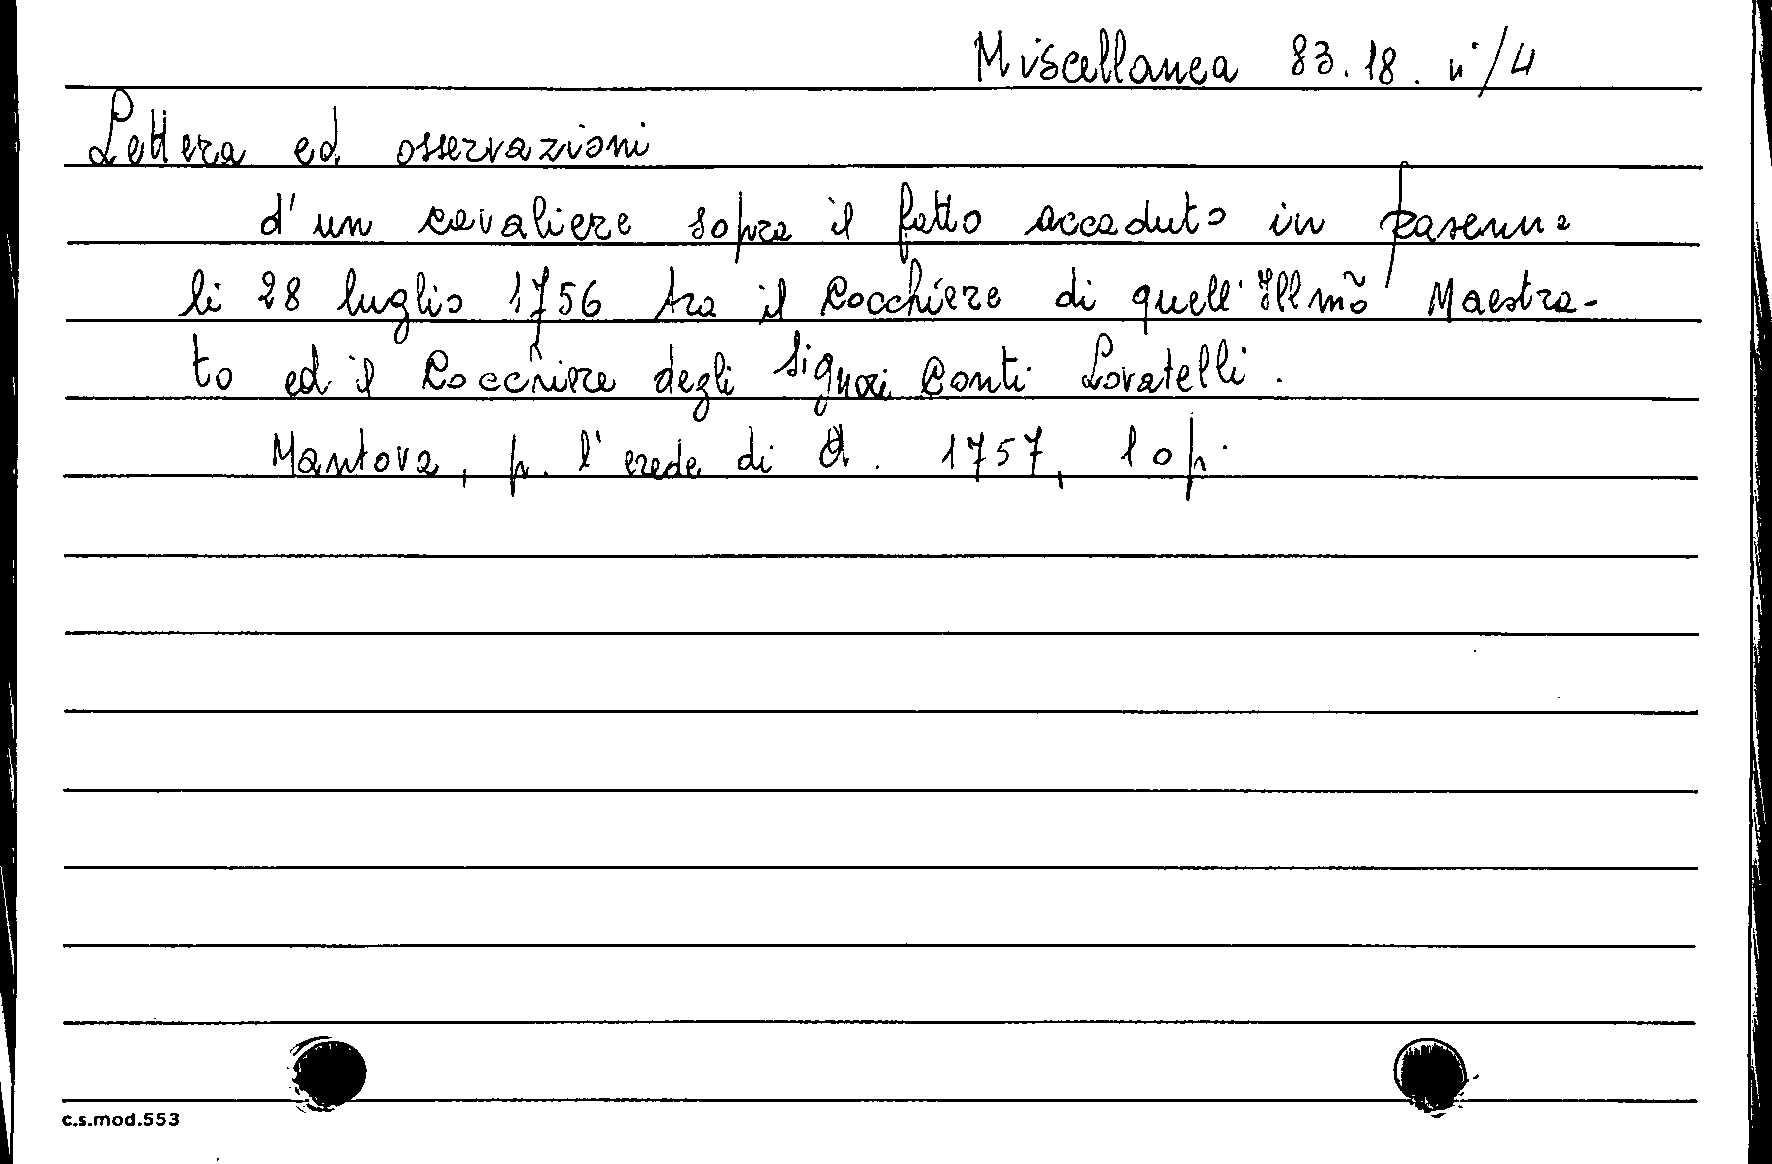 Miscellanea 83.18. n°/4
Lettera ed osservazioni
d'un cavaliere sopra il fatto accaduto in Ravenna
li 28 luglio 1756 tra il Cocchiere di quell'Illmõ Maestra-
to ed il Cocchiere degli Signori Conti Lovatelli.
Mantova, p. l'erede di A. 1757, 10 p.
c.s.mod.553